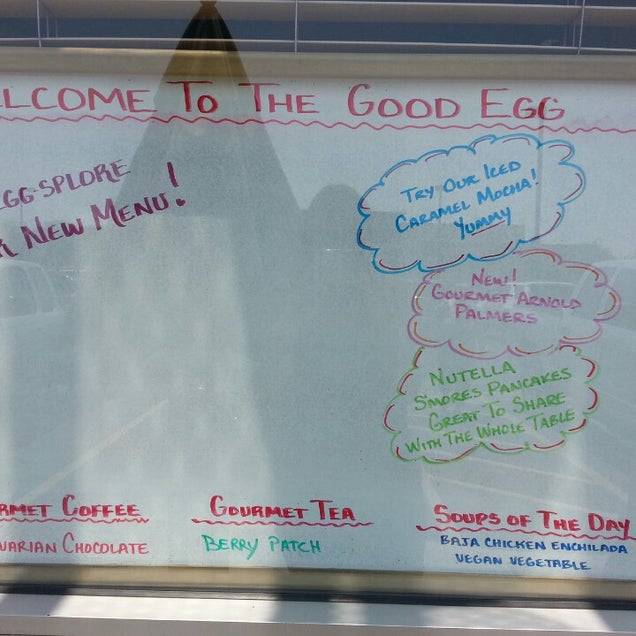 LCOME TO THE GOOD EGG
GG-SPLORE
R NEW MENU!
TRY OUR ICED
CARAMEL MOCHA!
YUMMY
NEW!
GOURMET ARNOLD
PALMERS
NUTELLA
S'MORES PANCAKES
GREAT TO SHARE
WITH THE WHOLE TABLE
RMET COFFEE
VARIAN CHOCOLATE
GOURMET TEA
BERRY PATCH
SOUPS OF THE DAY
BAJA CHICKEN ENCHILADA
VEGAN VEGETABLE